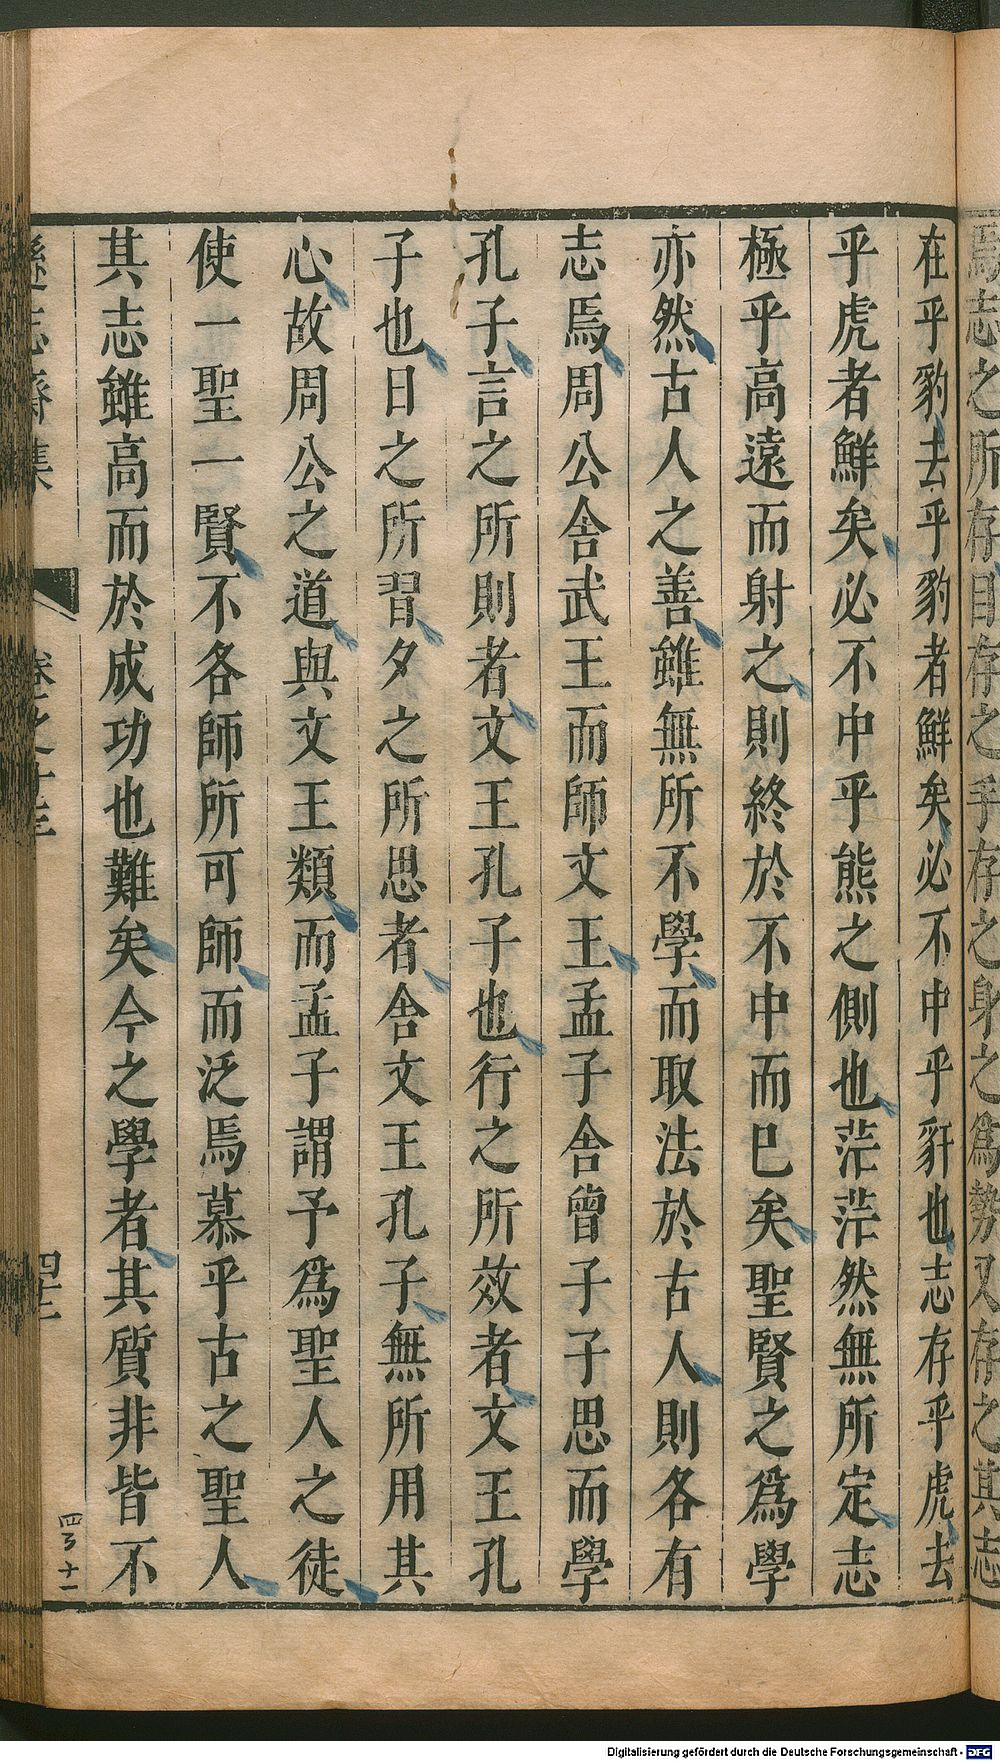 焉志之所存目存之手存之身之爲勢又存之其志
在乎豹去乎豹者鮮矣必不中乎豻也志存乎虎去
乎虎者鮮矣必不中乎熊之側也茫茫然無所定志
極乎高遠而射之則終於不中而巳矣聖賢之爲學
亦然古人之善雖無所不學而取法於古人則各有
志焉周公舍武王而師文王孟子舍曾子子思而學
孔子言之所則者文王孔子也行之所效者文王孔
子也日之所習夕之所思者舍文王孔子無所用其
心故周公之道與文王類而孟子謂予爲聖人之徒
使一聖一賢不各師所可師而泛焉慕乎古之聖人
其志雖高而於成功也難矣今之學者其質非皆不
遜志齋集
卷之十三
四十二
Digitalisierung gefördert durch die Deutsche Forschungsgemeinschaft - DFG